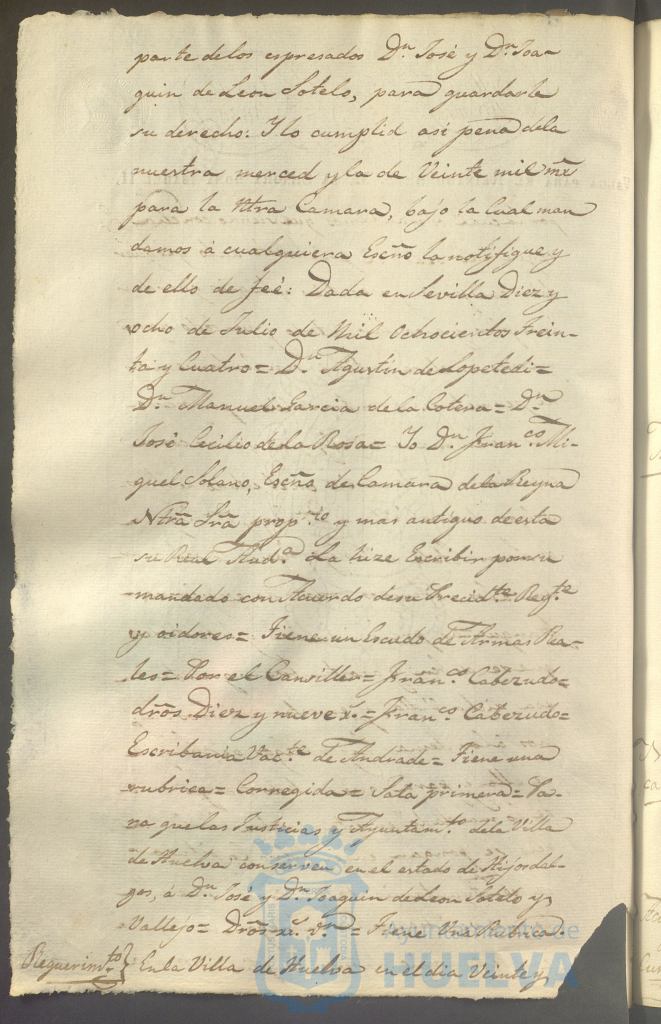 parte de los espresados Dn. José y Dn. Joa-
quin de Leon Sotelo, para guardarle
su derecho: Y lo cumplid asi pena dela
nuestra merced y la de Veinte mil mẍ
para la Ntra Camara, bajo la Cual man
damos á cualquiera Escño la notifique y
de ello de feé: Dada en Sevilla Diez y
ocho de Julio de Mil Ochocientos Trein-
ta y Cuatro= Dn. Agustin de Lopetedi=
Dn. Manuel Garcia de la Cotera= Dn
José Cecilio de la Rosa= Yo Dn. Francо. Mi-
guel Solano, Escño. de Camara dela Reyna
Ntrã Srã proprio y mas antiguo de esta
su Real Auda. La hize Escribir por su
mandado con Acuerdo de su Presidte. Regte.
y oidores= Tiene un Escudo de Armas Rea-
les= Por el Cansiller= Franco. Cabezudo=
drõs. Diez y nueve = Franco. Cabezudo=
Escribania Vacte. de Andrade= Tiene una
rubrica= Corregida= Sala primera= Pa-
ra que las Justicias y Ayuntamto. dela Villa
de Huelva conserven en el estado de Hijosdal-
gos, á Dn. José y Dn. Joaquin de Leon Sotelo y
Vallejo= Drõs = Tiene Una Rubrica
Requerimto.} En la Villa de Huelva en el dia Veinte y
Ayuntamiento de
HUELVA